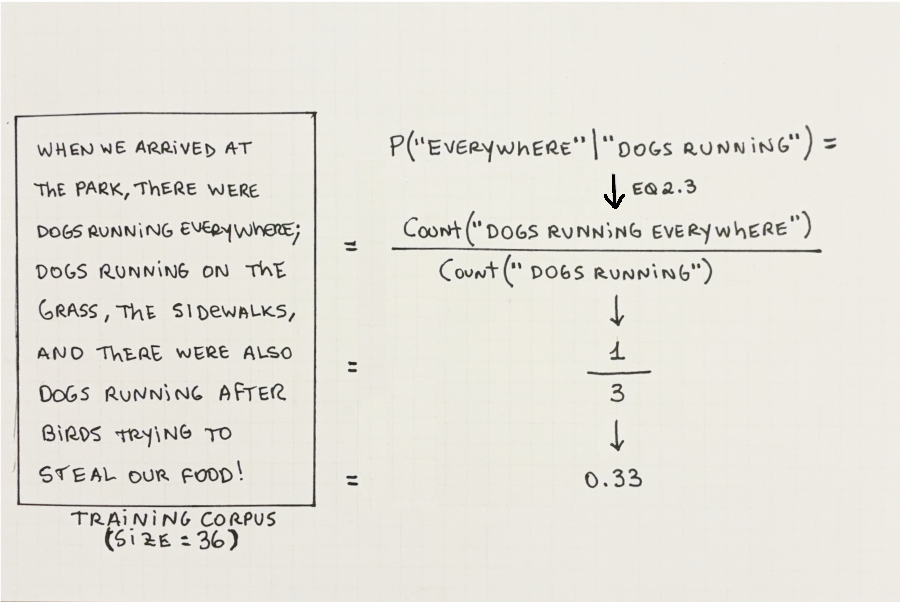 WHEN WE ARRIVED AT
THE PARK, THERE WERE
DOGS RUNNING EVERYWHERE;
DOGS RUNNING ON THE
GRASS, THE SIDEWALKS,
AND THERE WERE ALSO
DOGS RUNNING AFTER
BIRDS TRYING TO
STEAL OUR FOOD!
TRAINING CORPUS
(SIZE = 36)
P("EVERYWHERE"|"DOGS RUNNING") =
↓ EQ 2.3
= Count("DOGS RUNNING EVERYWHERE")
Count("DOGS RUNNING")
↓
= 1
3
↓
= 0.33